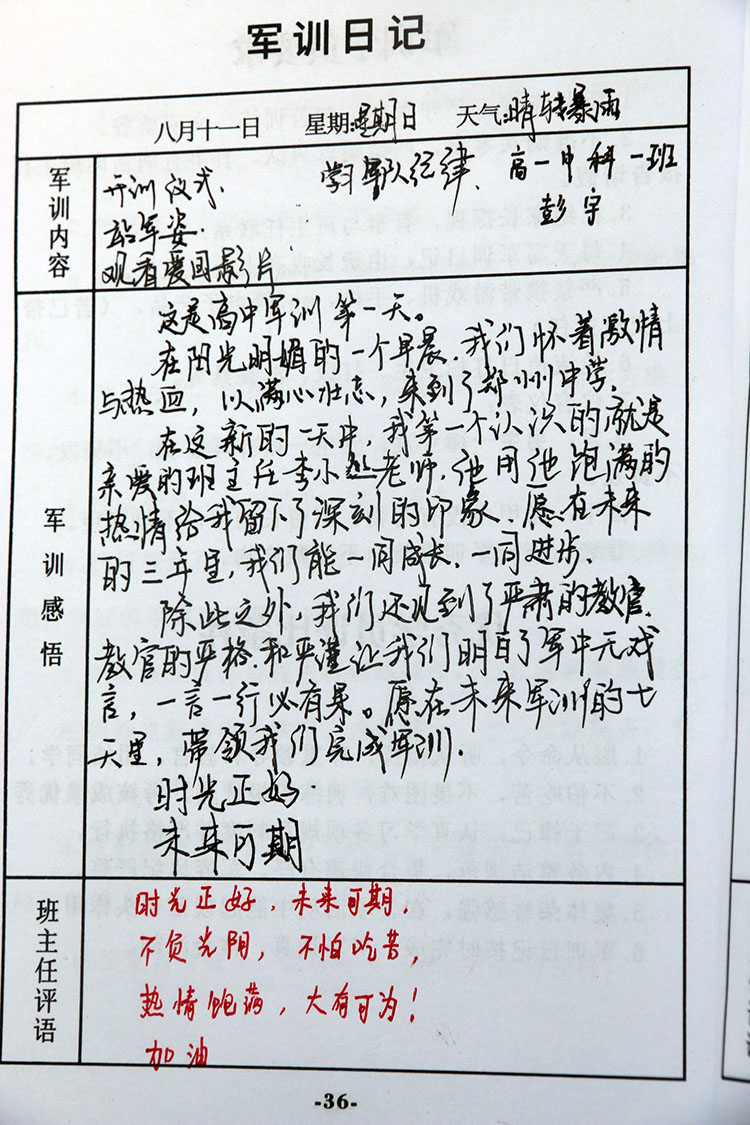 军训日记
八月十一日 星期:星期日 天气:晴转暴雨
军训内容
开训仪式. 学习军队纪律. 高一甲科一班
站军姿. 彭宇
观看爱国影片
军训感悟
这是高中军训第一天。
在阳光明媚的一个早晨,我们怀着激情
与热血,以满心壮志,来到了郑州中学.
在这新的一天中,我第一个认识的就是
亲爱的班主任李小丛老师,他用他饱满的
热情给我留下了深刻的印象.愿在未来
的三年里,我们能一同成长.一同进步.
除此之外,我们还见到了严肃的教官.
教官的严格.和严谨让我们明白了军中无戏
言,一言一行必有果。愿在未来军训的七
天里,带领我们完成军训.
时光正好.
未来可期
班主任评语
时光正好,未来可期,
不负光阴,不怕吃苦,
热情饱满,大有可为!
加油
-36-